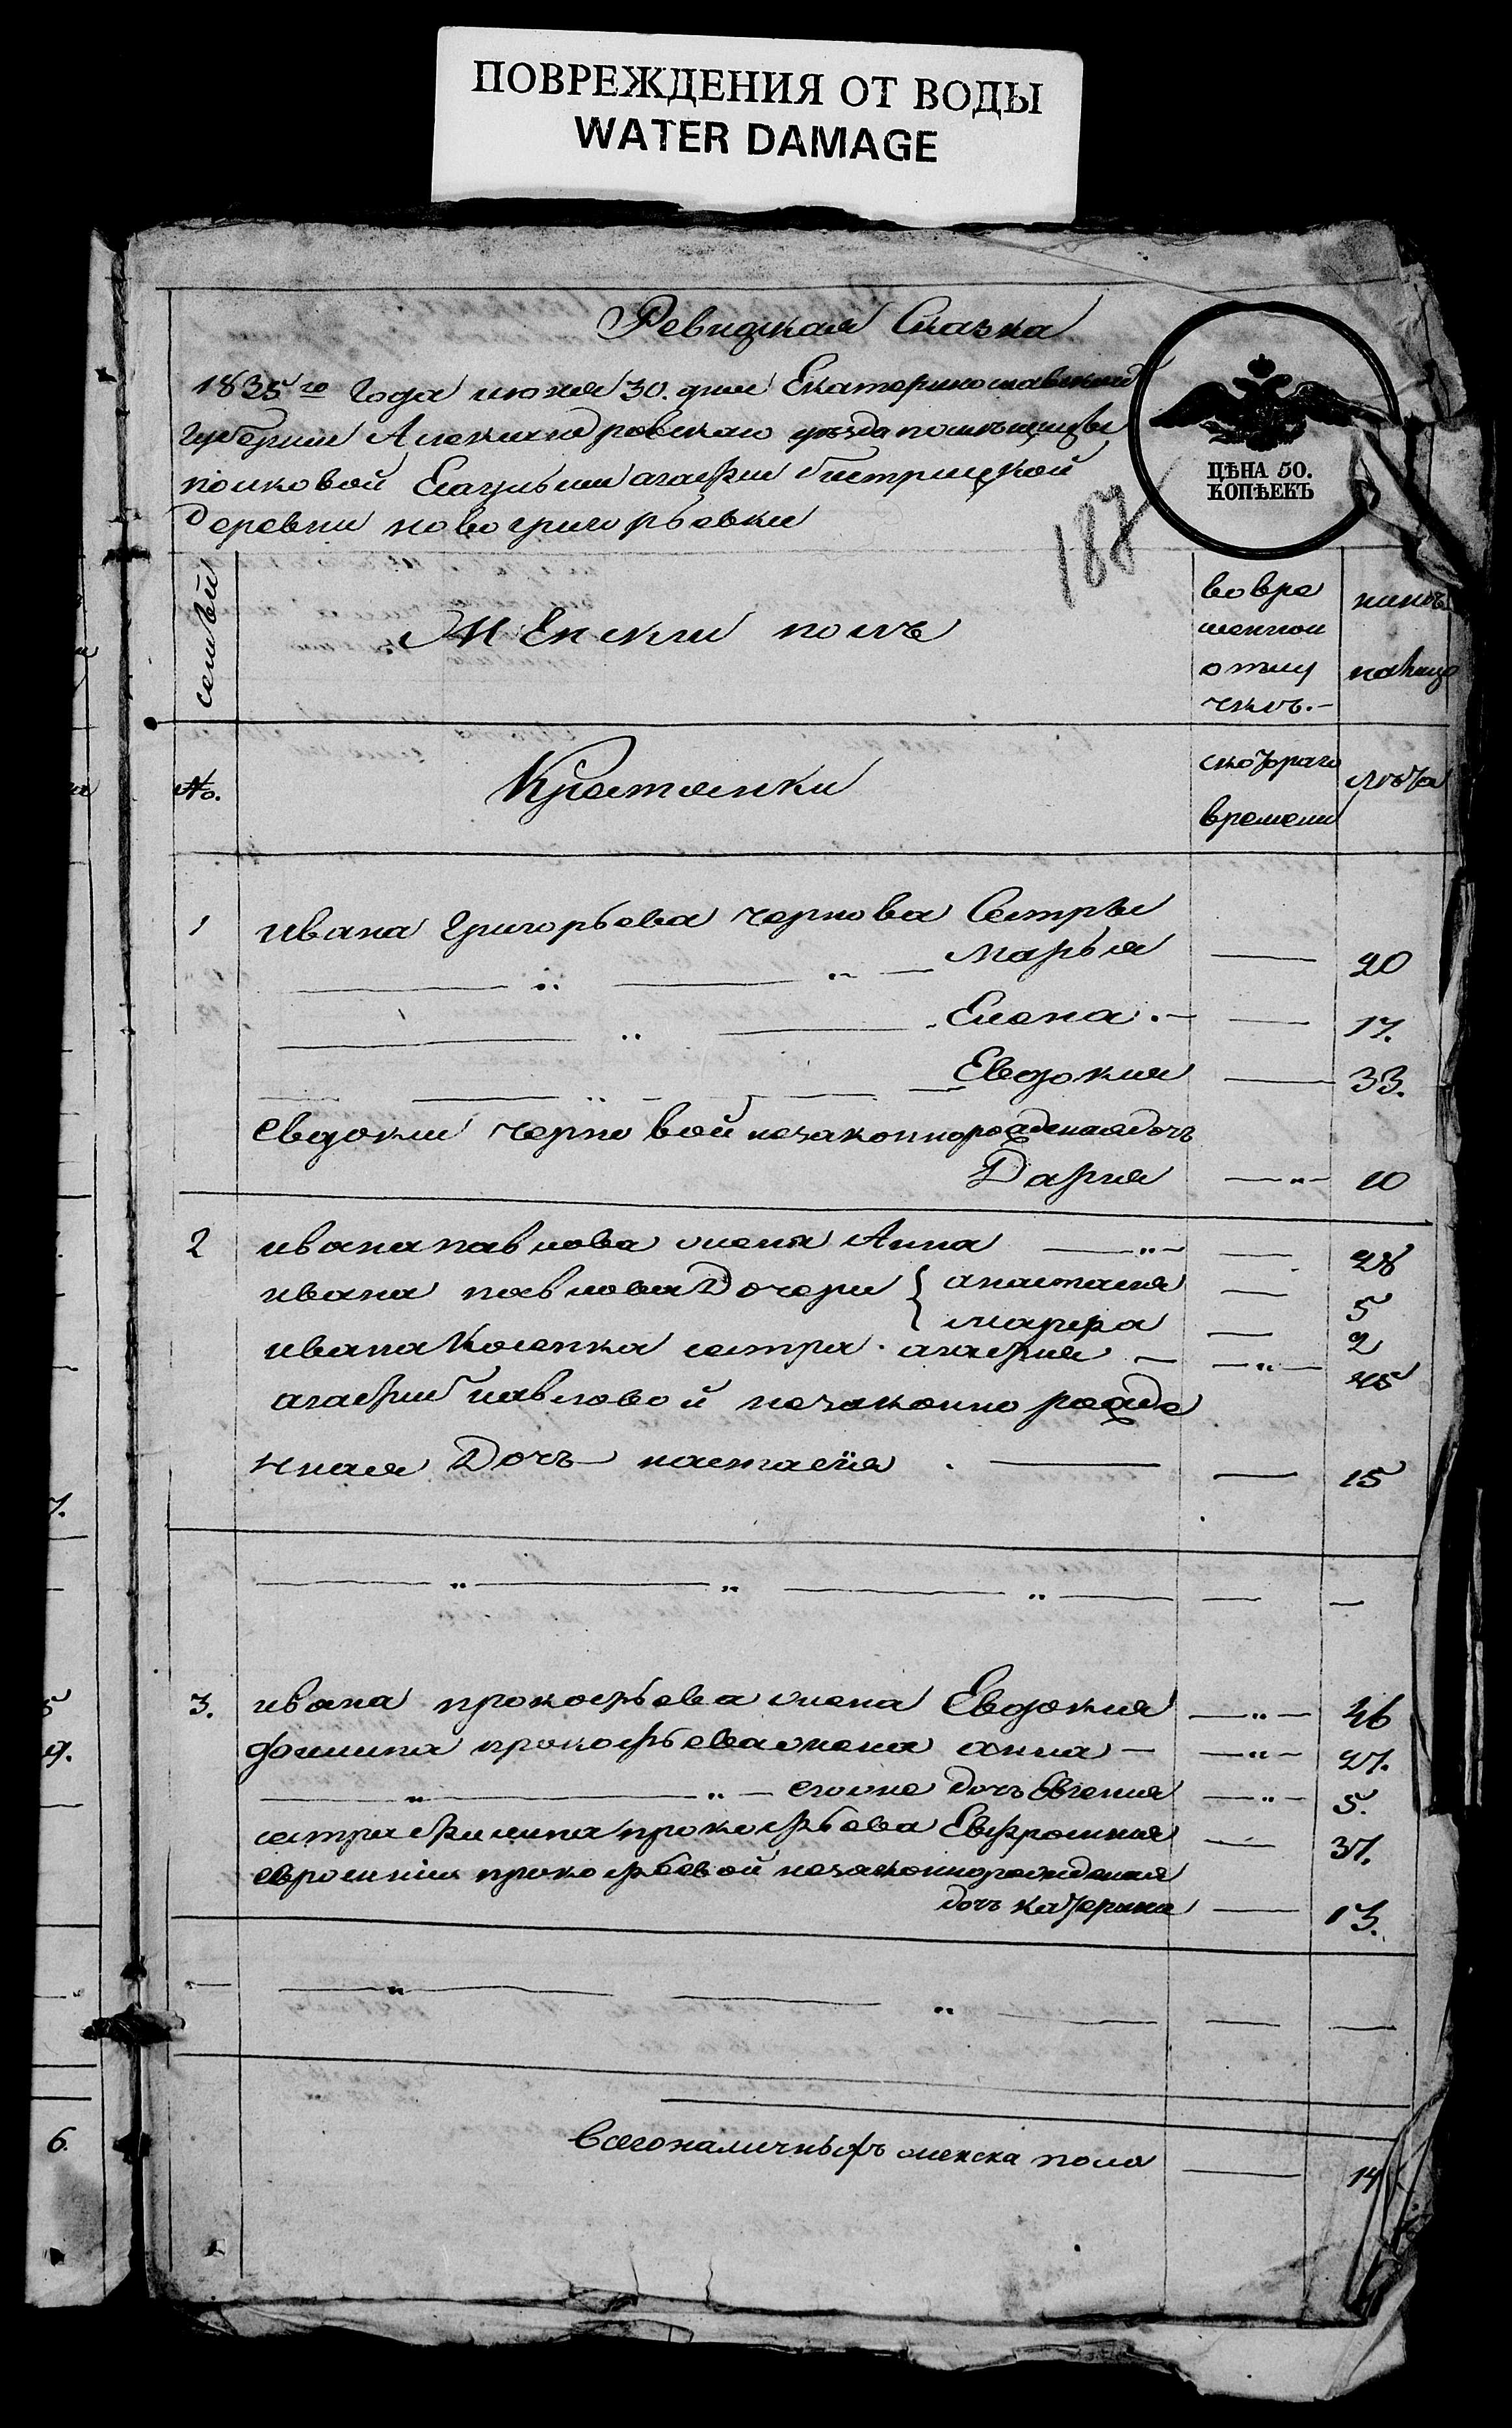 ПОВРЕЖДЕНИЯ ОТ ВОДЫ
WATER DAMAGE
Ревизкая Сказка
1835го Года июня 30. дня Екатеринославской
Губернии Александровскаго уезда помъщицы
полковой Есаульши агафии Быстрицкой
Деревни новогригорьевки
ЦѢНА 50.
КОПѢЕКЪ
187
семьи
Женскии полъ
во вре
менной
отлу
чкъ.
нынъ
налицо
№.
Крестьянки
скотораго
времени
лѣта
1 ивана Григорьева чернова Сестры
Марья 20
Елена 17.
Евдокия 33.
Евдокии черновой незаконнорожденая дочь
Дария 10
2 ивана павлова жена Анна 28
ивана павлова Дочери анастасия 5
марфа 2
ивана сестра агафия 45
агафии павловой незаконно рожде
нная Дочь настасия 15
3. ивана прокофьева жена Евдокия 46
филипа прокофьева жена анна 27.
егоже дочь Евгения 5.
сестра филипа прокофьева Евфросиния 37.
евросинии прокофьевой незаконнорожденая
дочь катерина 13.
всего наличныхъ женска пола 14
7.
5
9.
6.